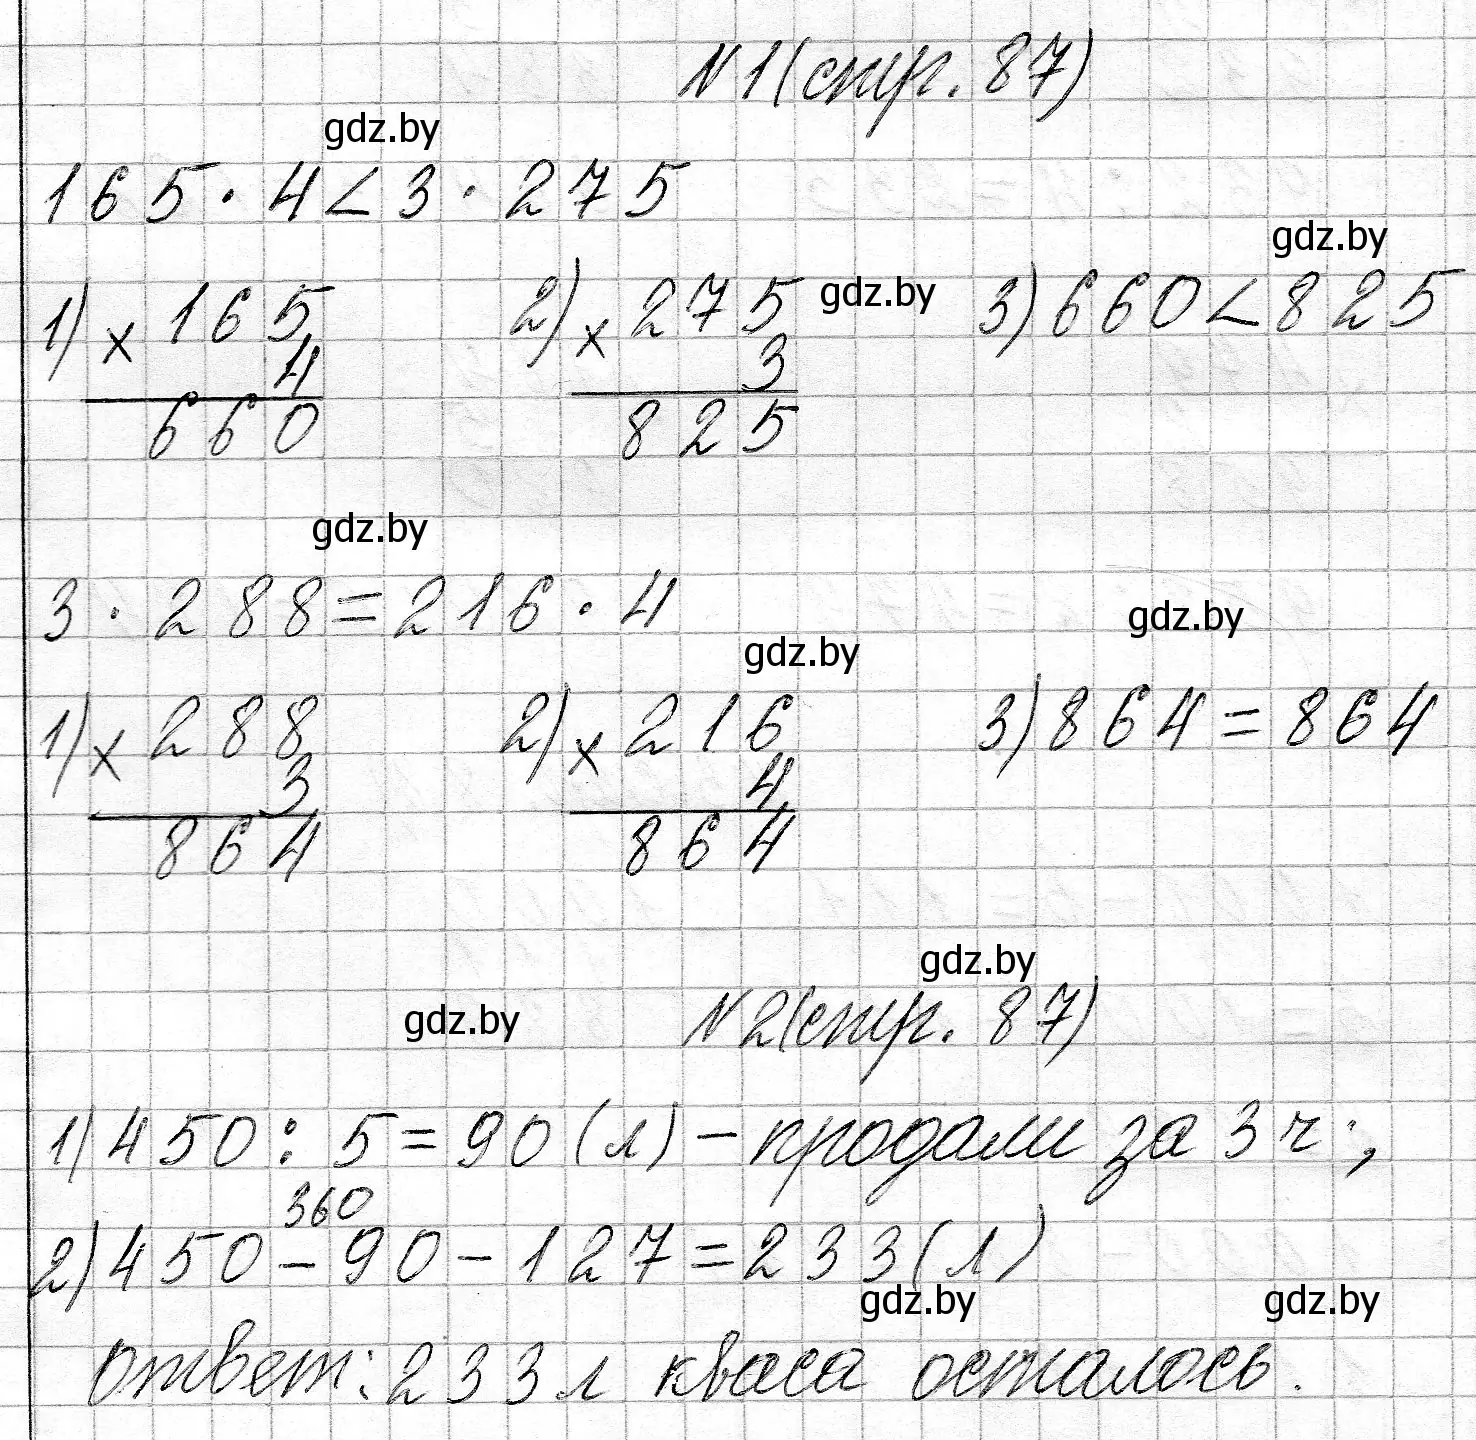 N1(стр. 87)
gdz.by
165 · 4 < 3 · 275
gdz.by
1) × 165 2) × 275 gdz.by 3) 660 < 825
4 3
660 825
gdz.by
3 · 288 = 216 · 4
gdz.by
gdz.by
1) × 288 2) × 216 3) 864 = 864
3 4
864 864
gdz.by
gdz.by
N2(стр. 87)
1) 450 : 5 = 90 (л) – продали за 3 ч.;
360
2) 450 – 90 – 127 = 233 (л)
gdz.by gdz.by
Ответ: 233 л кваса осталось.